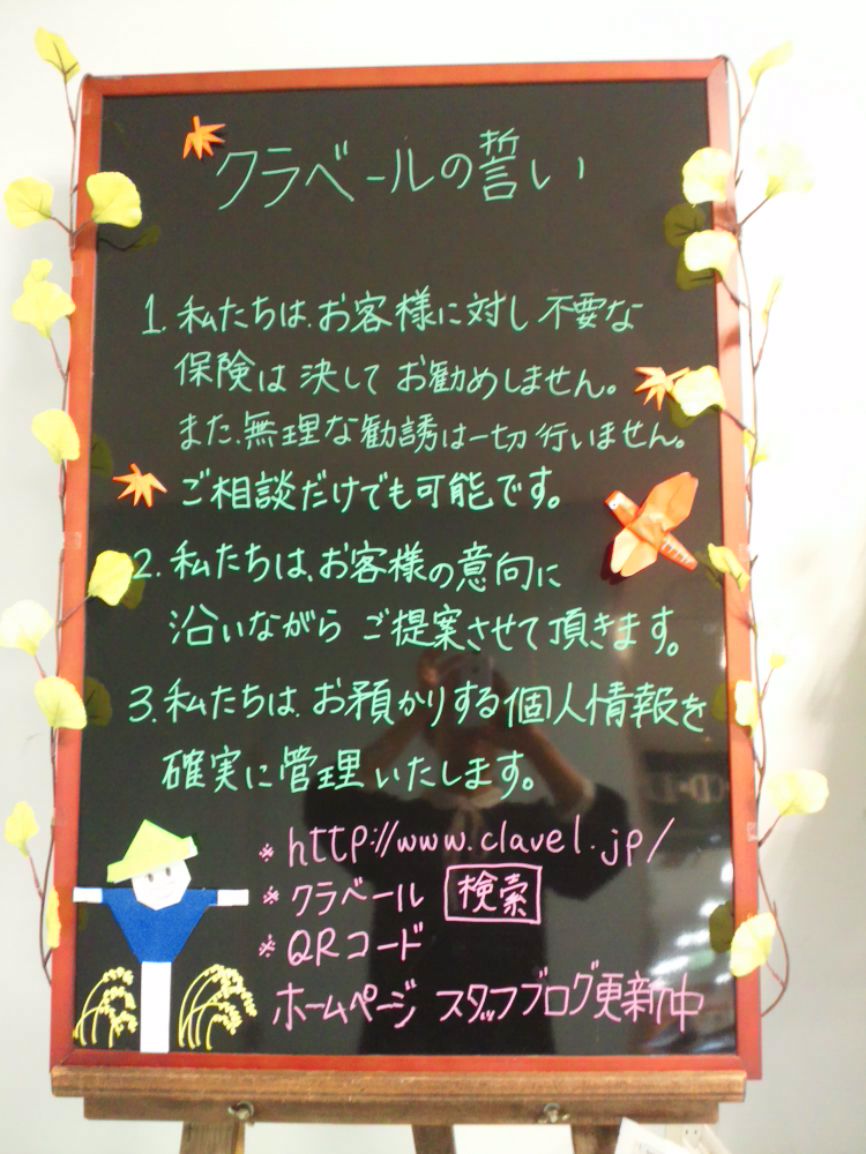 クラベールの誓い
1. 私たちは、お客様に対し不要な
保険は決してお勧めしません。
また、無理な勧誘は一切行いません。
ご相談だけでも可能です。
2. 私たちは、お客様の意向に
沿いながらご提案させて頂きます。
3. 私たちは、お預かりする個人情報を
確実に管理いたします。
※ http://www.clavel.jp/
※ クラベール 検索
※ QRコード
ホームページ スタッフブログ更新中